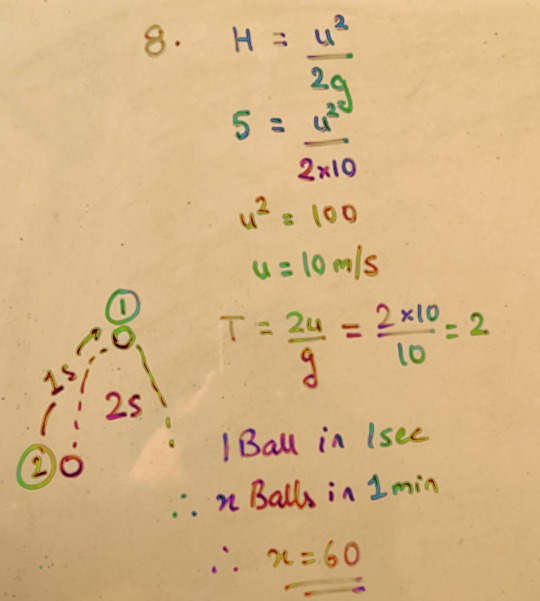 8. H = u²/2g
5 = u²/2×10
u² = 100
u = 10 m/s
T = 2u/g = 2×10/10 = 2
1
1s
2s
2
1 Ball in 1 sec
∴ x Balls in 1 min
∴ x = 60